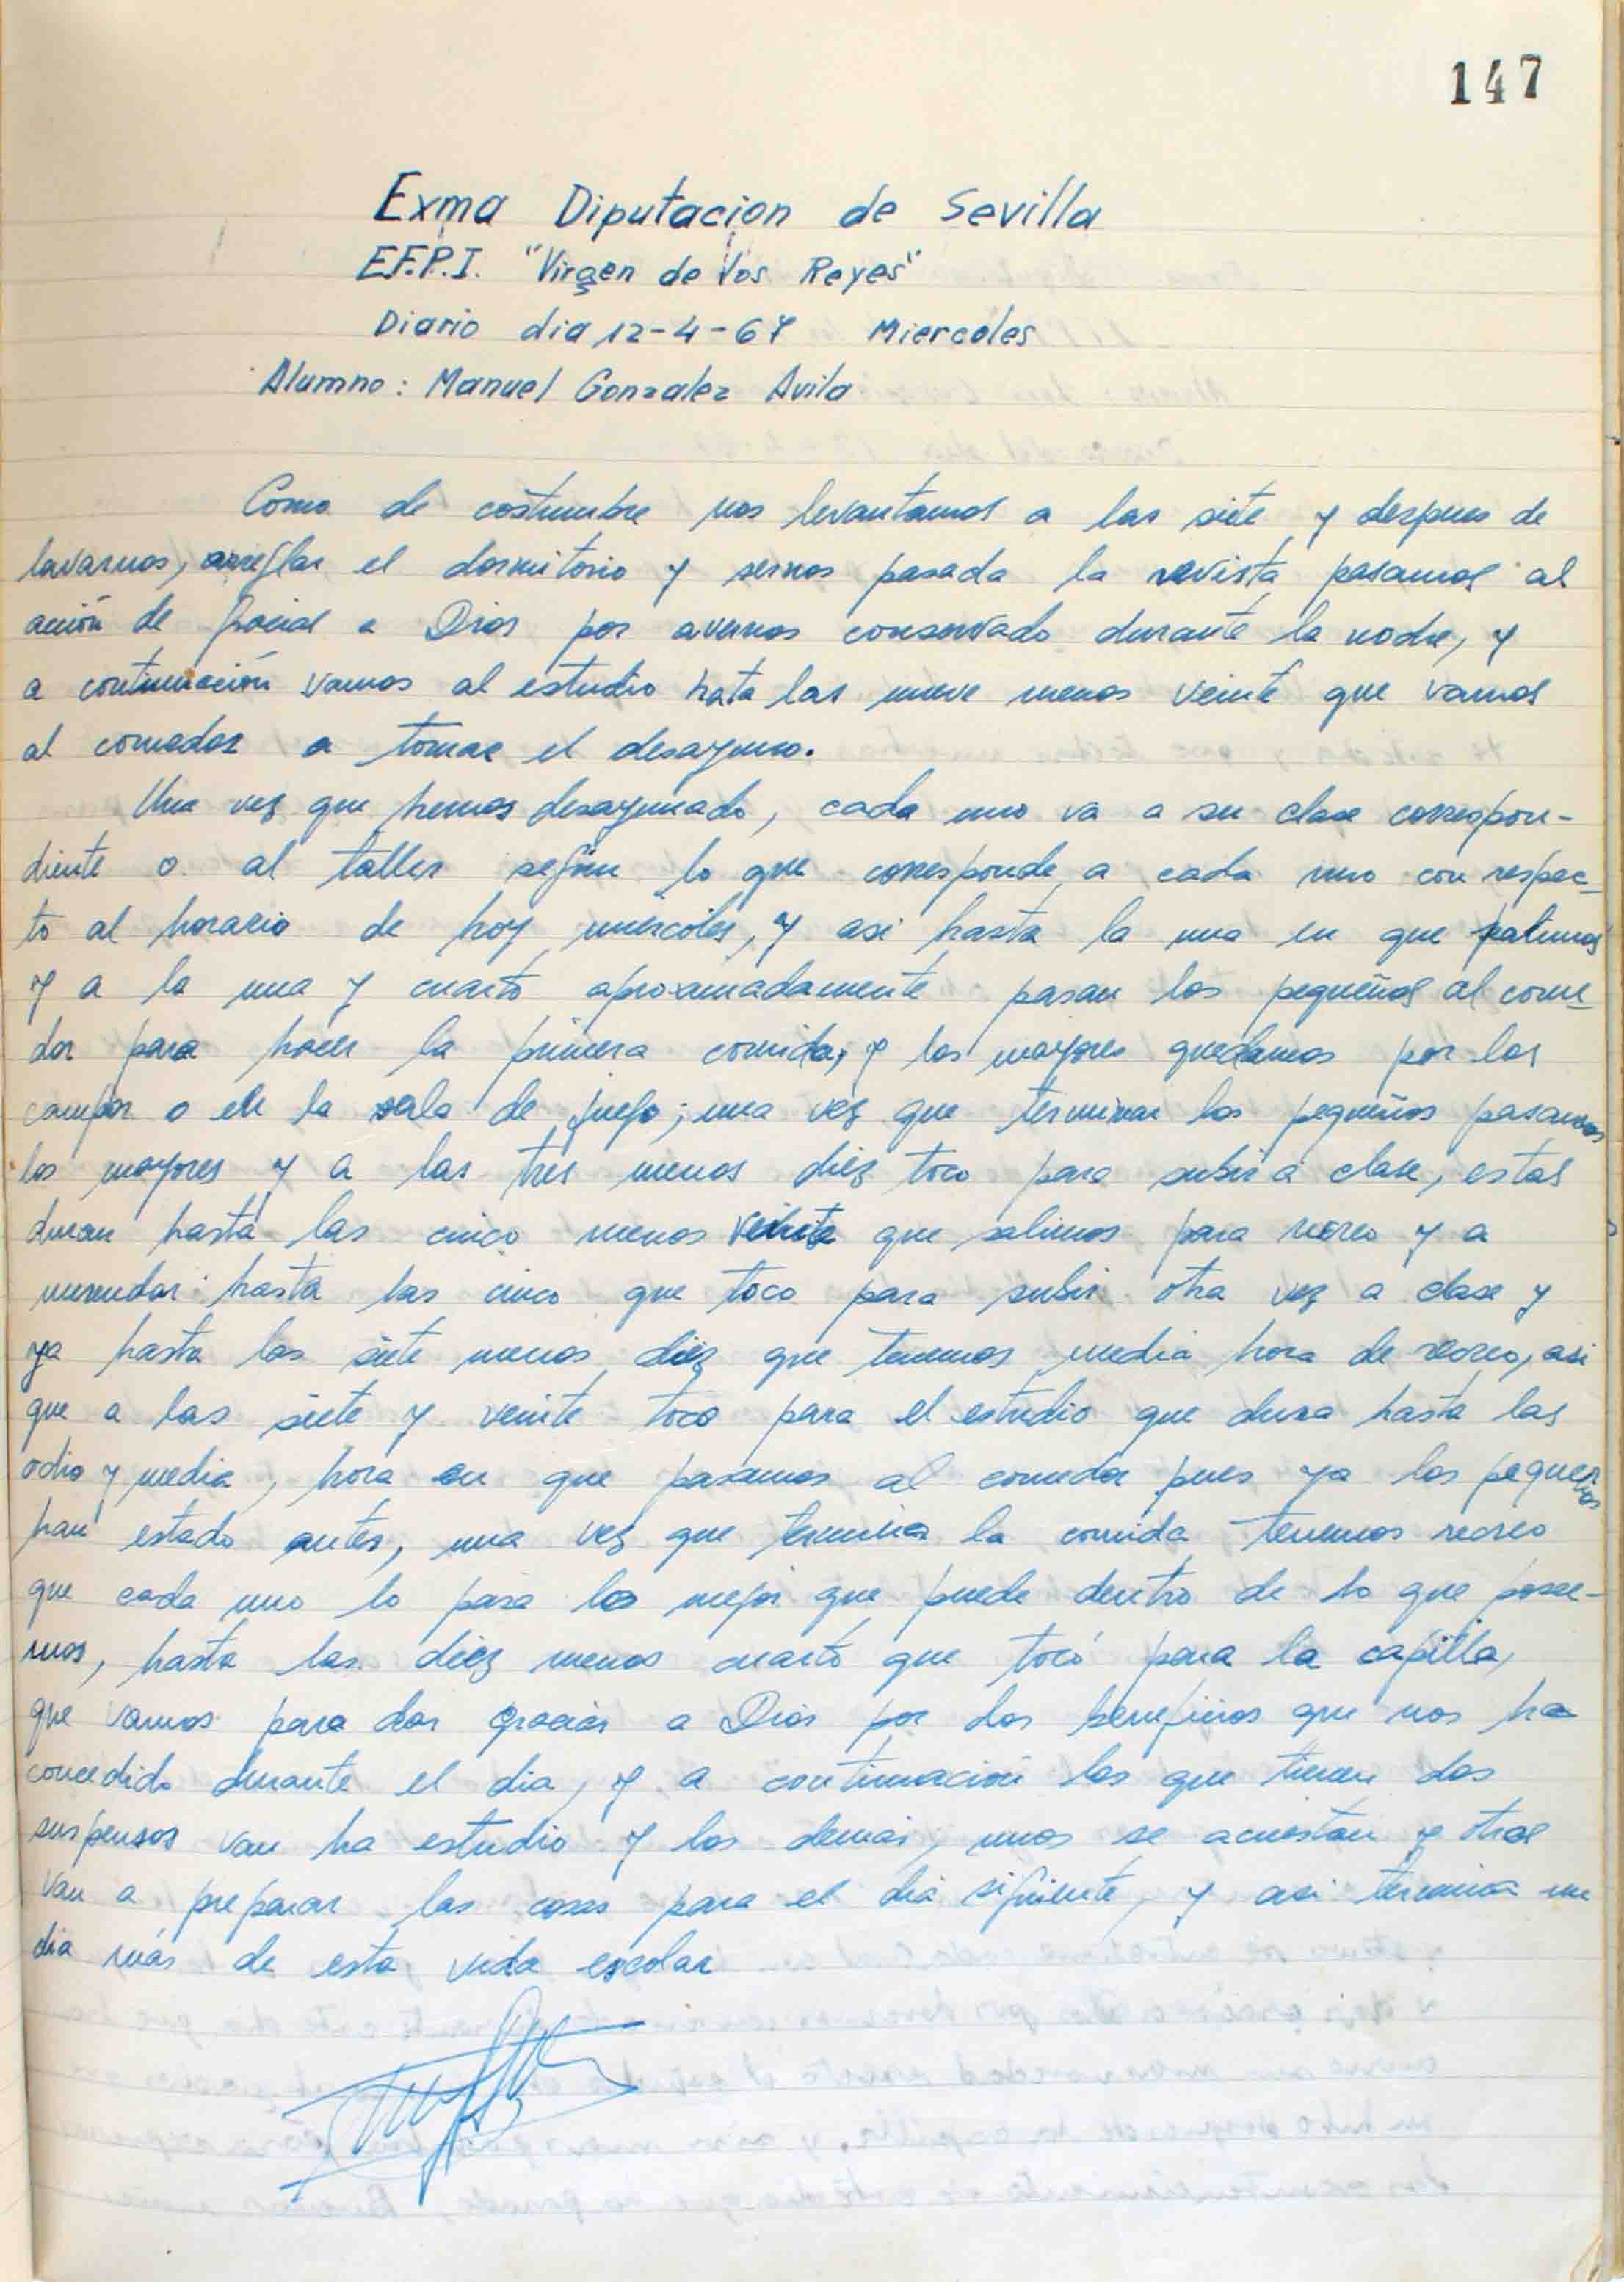 147
Exma Diputacion de Sevilla
E.F.P.I. "Virgen de los Reyes"
Diario dia 12-4-67 Miercoles
Alumno: Manuel Gonzalez Avila
Como de costumbre nos levantamos a las siete y despues de
lavarnos, arreglar el dormitorio y sernos pasada la revista pasamos al
acción de gracias a Dios por avernos conservado durante la noche, y
a continuación vamos al estudio hata las nueve menos veinte que vamos
al comedor a tomar el desayuno.
Una vez que hemos desayunado, cada uno va a su clase correspon-
diente o al taller segun lo que corresponde a cada uno con respec-
to al horario de hoy miercoles, y asi hasta la una en que salimos
y a la una y cuarto aproximadamente pasan los pequeños al come-
dor para hacer la primera comida, y los mayores quedamos por los
campos o en la sala de juego; una vez que terminan los pequeños pasamos
los mayores y a las tres menos diez toco para subir a clase, estas
duran hasta las cinco menos veinte que salimos para recreo y a
merendar hasta las cinco que toco para subir otra vez a clase y
ya hasta las siete menos diez que tenemos media hora de recreo, asi
que a las siete y veinte toco para el estudio que dura hasta las
ocho y media, hora en que pasamos al comedor pues ya los pequeños
han estado antes, una vez que termina la comida tenemos recreo
que cada uno lo pasa los mejor que puede dentro de lo que posee-
mos, hasta las diez menos cuarto que tocó para la capilla,
que vamos para dar gracias a Dios por los beneficios que nos ha
concedido durante el dia, y a continuación los que tienen dos
suspensos van ha estudio y los demas, unos se acuestan y otros
van a preparar las cosas para el dia siguiente, y asi termina un
dia más de esta vida escolar